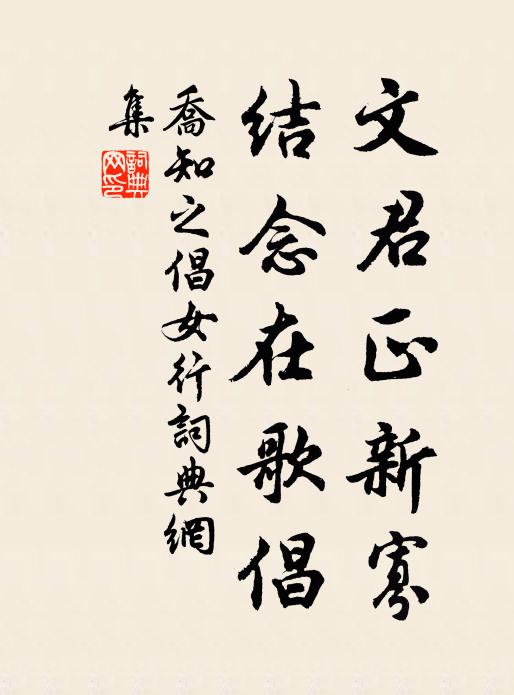 文君正新寡
結念在歌倡
喬知之倡女行詞典網
集
詞典
网印